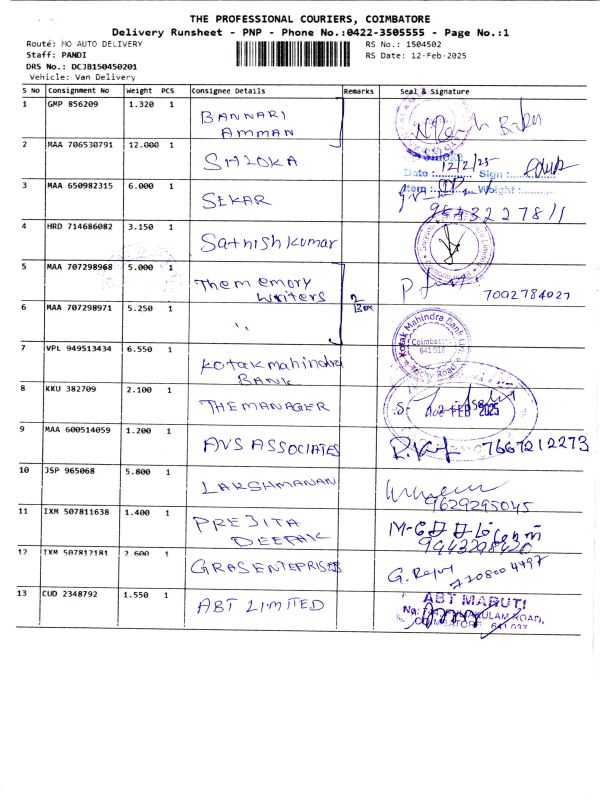 THE PROFESSIONAL COURIERS, COIMBATORE
Delivery Runsheet - PNP - Phone No.:0422-3505555 - Page No.:1
Route: MO AUTO DELIVERY
RS No.: 1504502
Staff: PANDI
RS Date: 12-Feb-2025
DRS No.: DCJB150450201
Vehicle: Van Delivery
S No Consignment No Weight PCS Consignee Details Remarks Seal & Signature
1 GMP 856209 1.320 1 BANNARI AMMAN
2 MAA 706530791 12.000 1 SHLOKA
12/2/25
Date : Sign :
Weight :
3 MAA 650982315 6.000 1 SEKAR
4 HRD 714686082 3.150 1 Sathish kumar
5 MAA 707298968 5.000 1 Thememory writers
2 Box
7092784027
6 MAA 707298971 5.250 1 ''
7 VPL 949513434 6.550 1 kotak mahindra BANK
Kotak Mahindra Bank Ltd.
Coimbatore
641 018
8 KKU 382709 2.100 1 THE MANAGER
FEB 2025
9 MAA 600514059 1.200 1 AVS ASSOCIATES
7667212273
10 JSP 965068 5.800 1 LAKSHMANAN
9629295045
11 IXM 507811638 1.400 1 PREJITA DEEPAK
12 IXM 507812181 2.600 1 GRASENTEPRISES
13 CUD 2348792 1.550 1 ABT LIMITED
ABT MARUTI